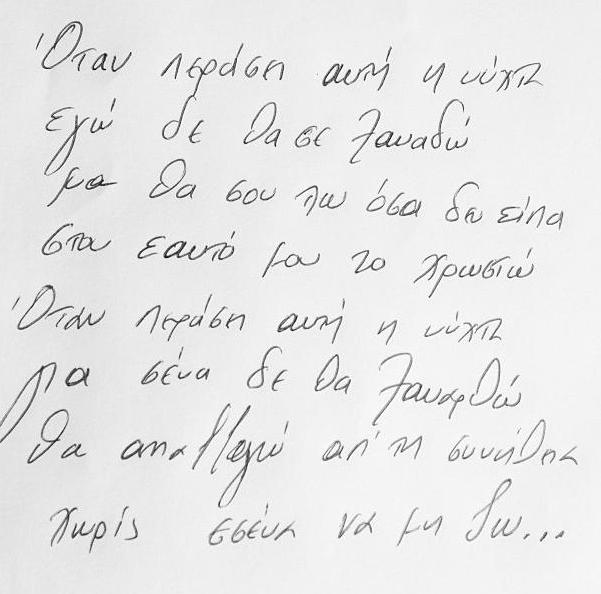 Όταν περάσει αυτή η νύχτα
εγώ δε θα σε ξαναδώ
μα θα σου πω όσα δεν είπα
στον εαυτό μου το χρωστώ
Όταν περάσει αυτή η νύχτα
για σένα δε θα ξαναρθώ
θα απαλλαγώ απ' τη συνήθεια
χωρίς εσένα να μη ζω...